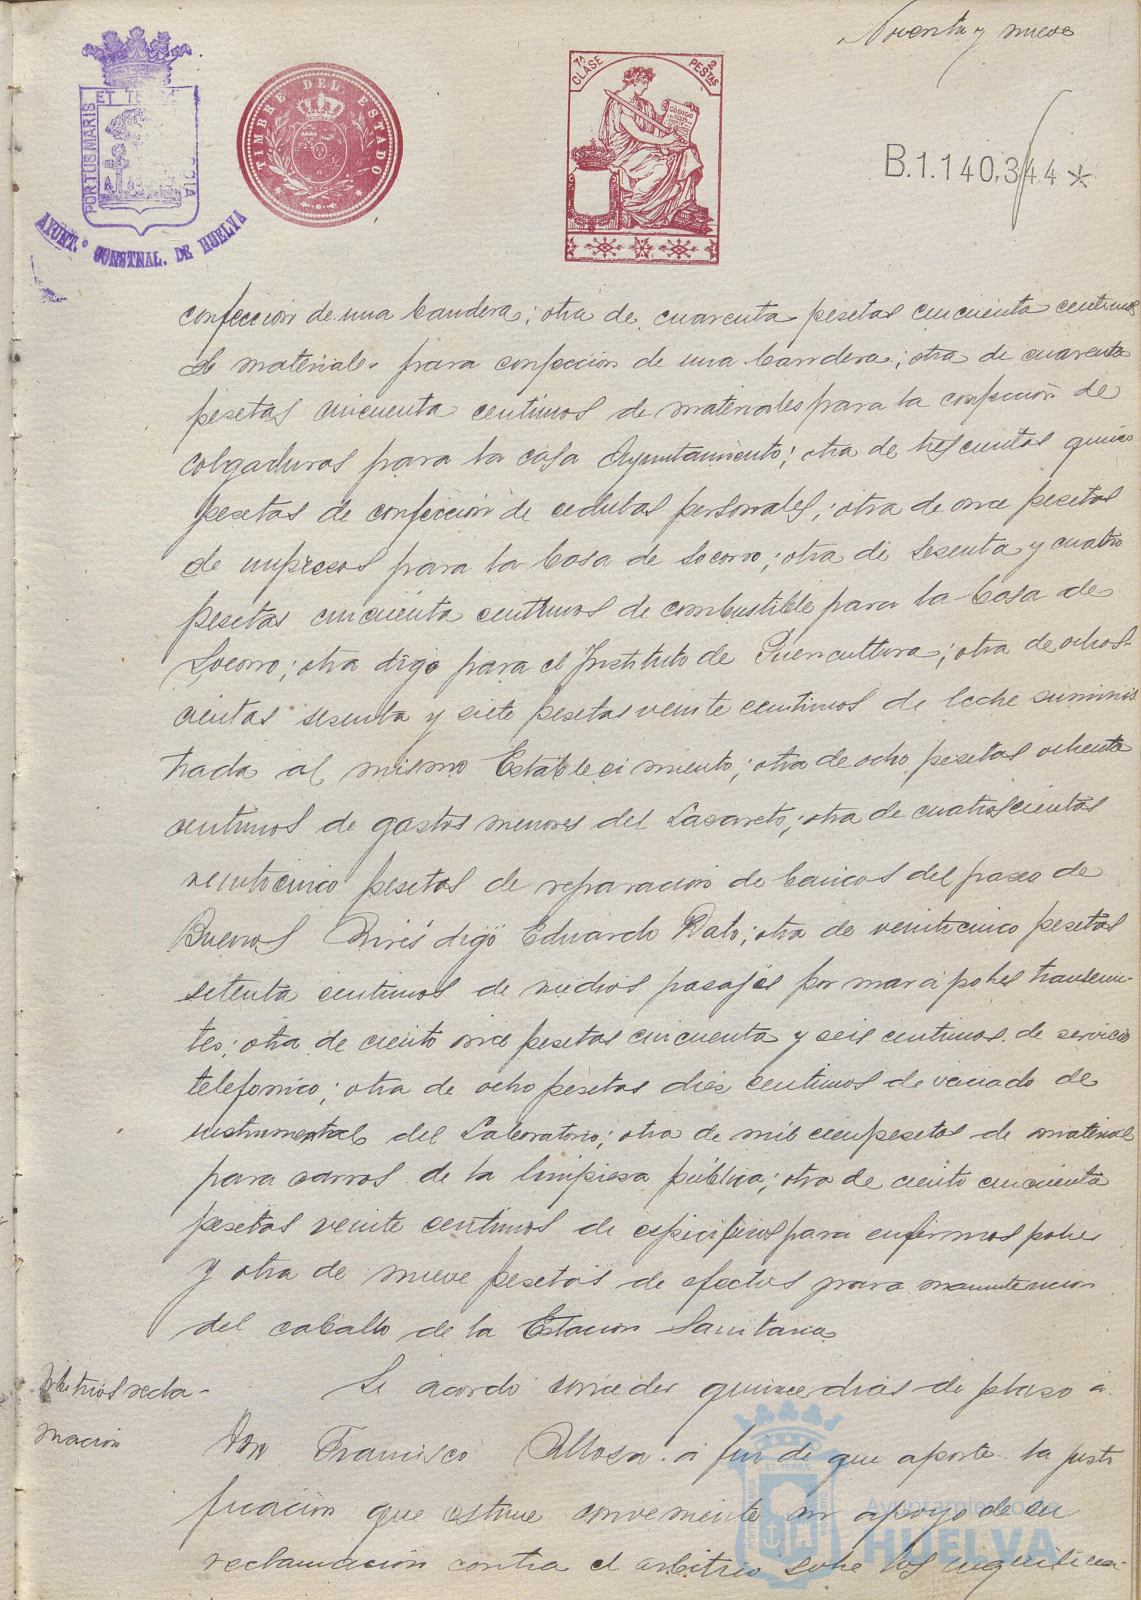 Noventa y nueve
PORTUS MARIS ET TERRAE CUSTODIA
AYUNT.º CONSTNAL. DE HUELVA
TIMBRE DEL ESTADO
7ª CLASE 2 PESTAS
CÓDIGO
B.1.140,344 *
confeccion de una bandera; otra de cuarenta pesetas cincuenta centimos
de materiales para confeccion de una bandera; otra de cuarenta
pesetas cincuenta centimos de materiales para la confección de
colgaduras para la casa Ayuntamiento; otra de trescientas quince
pesetas de confeccion de cedulas personales; otra de once pesetas
de impresos para la Casa de Socorro; otra de sesenta y cuatro
pesetas cincuenta centimos de combustible para la Casa de
Socorro; otra digo para el Instituto de Puericultura; otra de ochos-
cientas sesenta y siete pesetas veinte centimos de leche suminis
trada al mismo Establecimiento; otra de ocho pesetas ochenta
centimos de gastos menores del Lazareto; otra de cuatroscientas
veinticinco pesetas de reparacion de bancos del paseo de
Buenos Aires digo Eduardo Dato; otra de veinticinco pesetas
setenta centimos de medios pasajes por mar a pobres transeun-
tes; otra de ciento once pesetas cincuenta y seis centimos de servicio
telefonico; otra de ocho pesetas diez centimos de vaciado de
instrumental del Laboratorio; otra de mil cien pesetas de material
para carros de la limpieza pública; otra de ciento cincuenta
pesetas veinte centimos de especificos para enfermos pobres
y otra de nueve pesetas de efectos para manutencion
del caballo de la Estacion Sanitaria
Arbitrios recla-
macion
Se acordó conceder quince dias de plazo á
Don Francisco á fin de que aporte la justi
ficacion que estime conveniente en apoyo de su
reclamación contra el arbitrio sobre los
Ayuntamiento de
HUELVA